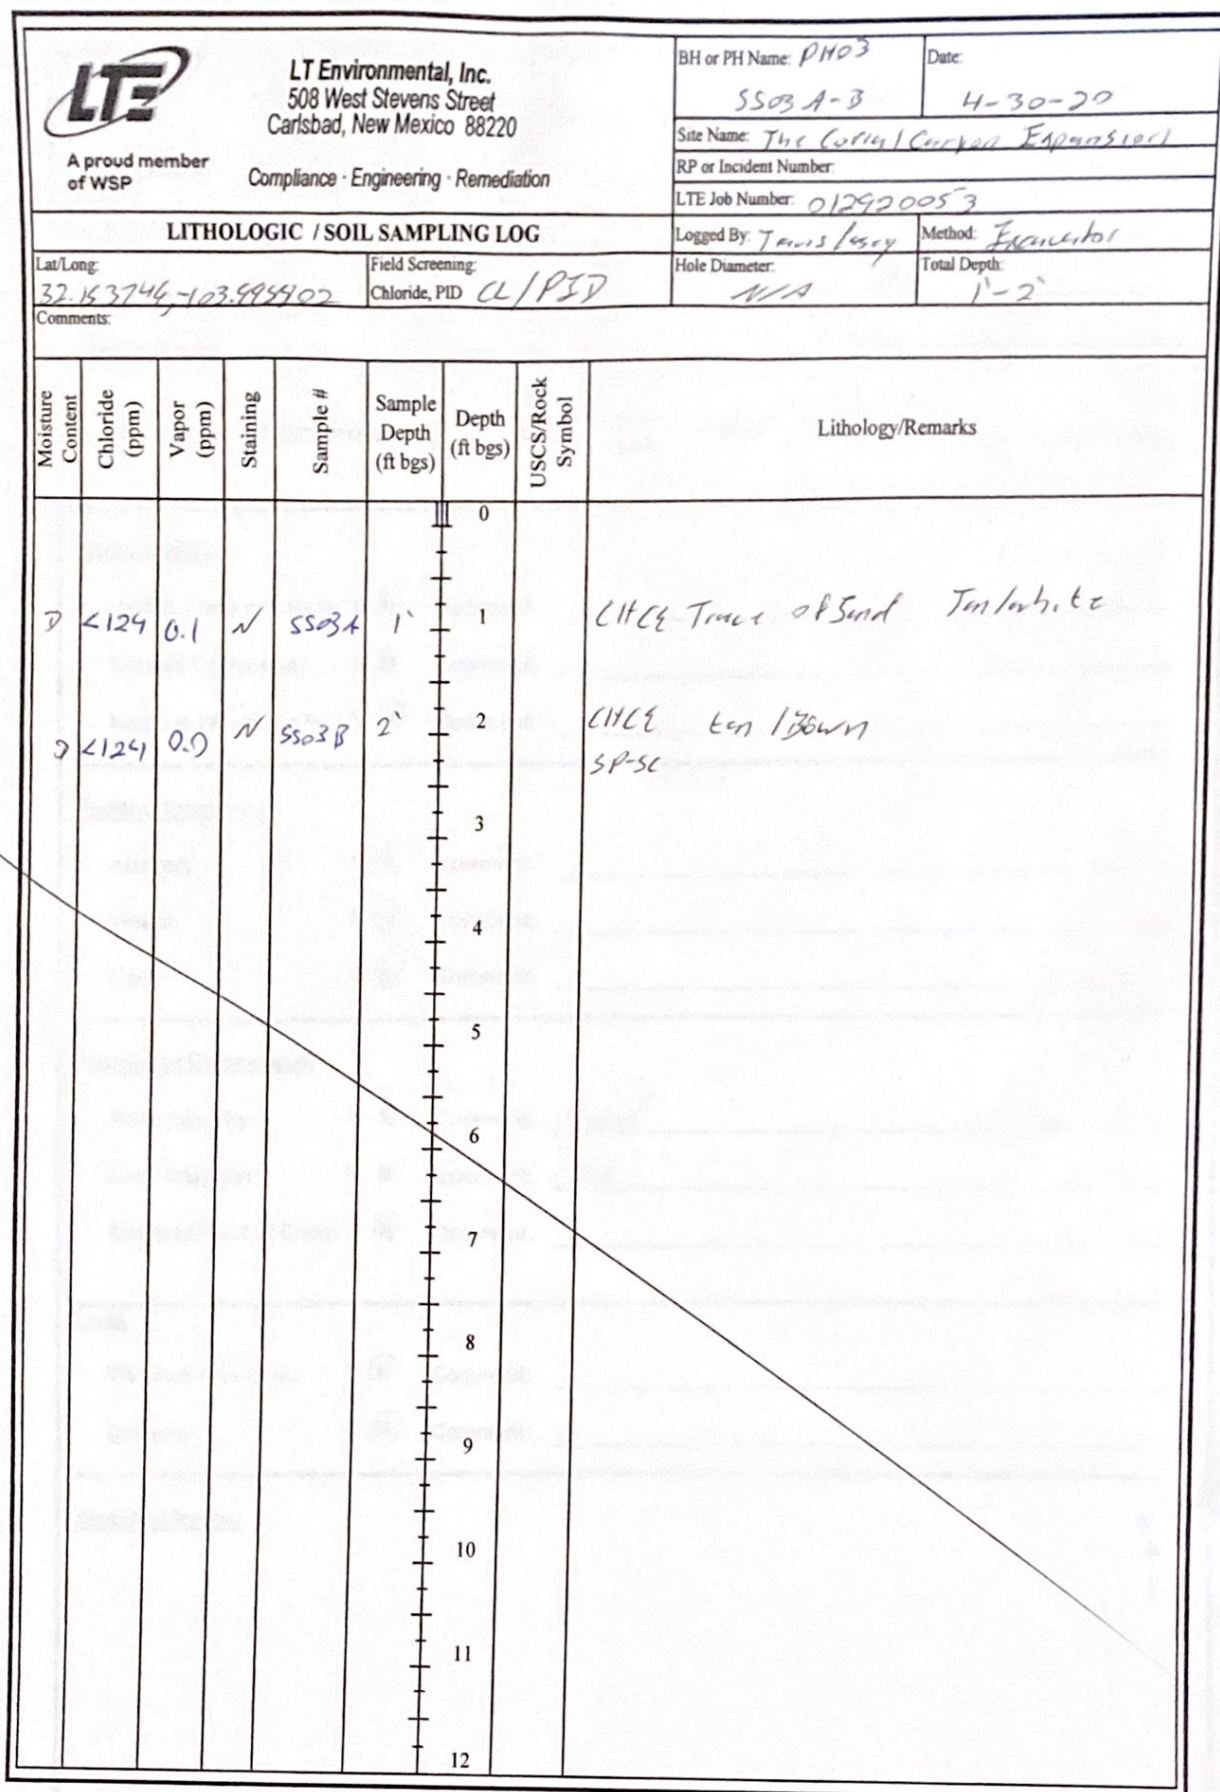 LTE
A proud member
of WSP
LT Environmental, Inc.
508 West Stevens Street
Carlsbad, New Mexico 88220
Compliance · Engineering · Remediation
BH or PH Name: PH03
SS03 A-B
Date:
4-30-20
Site Name: The Expansion
RP or Incident Number:
LTE Job Number: 012920053
LITHOLOGIC / SOIL SAMPLING LOG
Logged By:
Method:
Lat/Long:
Field Screening:
Chloride, PID CL/PID
Hole Diameter:
N/A
Total Depth:
1'-2'
Comments:
Moisture Content
Chloride (ppm)
Vapor (ppm)
Staining
Sample #
Sample Depth (ft bgs)
Depth (ft bgs)
USCS/Rock Symbol
Lithology/Remarks
0
D <124 0.1 N SS03A 1' 1 Trace of Sand Tan/white
D <124 0.0 N SS03B 2' 2 tan/Bown
SP-SC
3
4
5
6
7
8
9
10
11
12